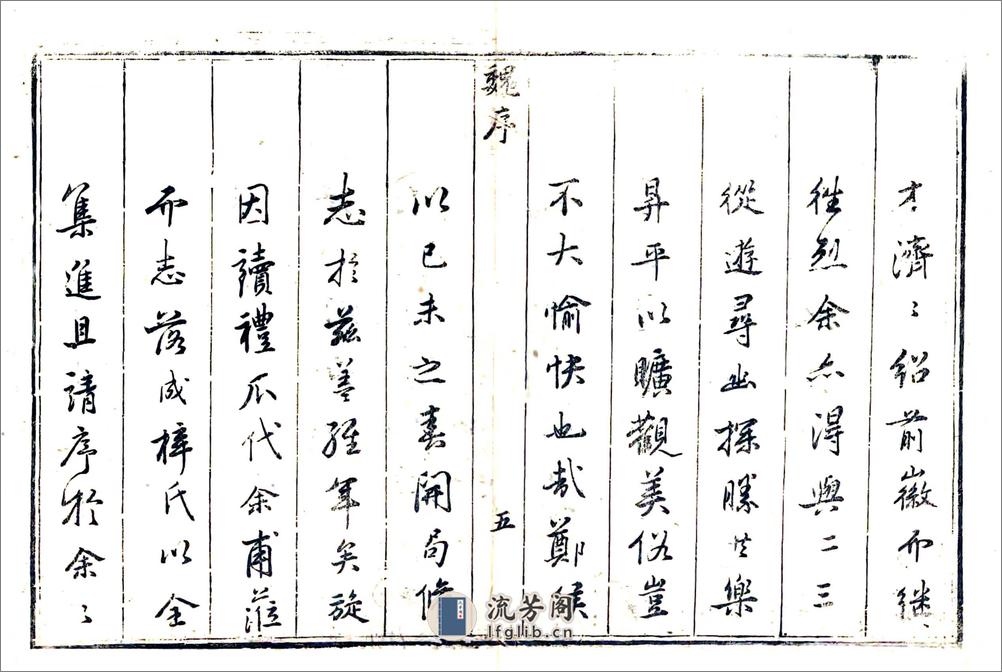 才濟〻紹前徽而継
徃烈余亦得與二三
從遊尋幽探勝共樂
昇平以曠觀美俗豈
不大愉快也哉鄭侯
魏序
五
以已未之春開局修
志於茲蓋經年矣旋
因讀禮瓜代余甫蒞
而志落成梓氏以全
集進且請序於余〻
流芳阁
lfglib.cn